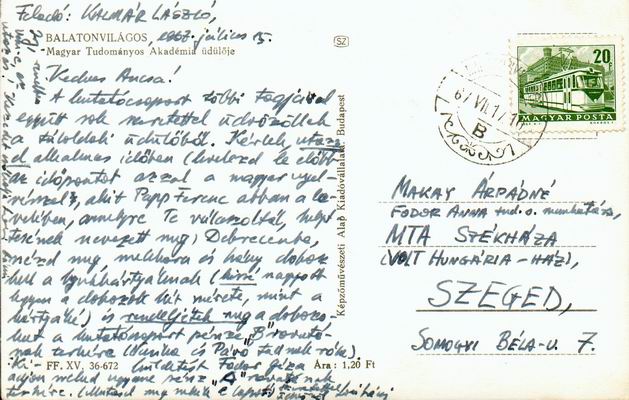 Feladó: KALMÁR LÁSZLÓ,
BALATONVILÁGOS, 1967. július 15.
Magyar Tudományos Akadémia üdülője
SZ
Kedves Ancsa!
A kutatócsoport többi tagjával
együtt sok szeretettel üdvözöllek
a túloldali üdülőből. Kérlek, utazz
el alkalmas időben (levelezd le előbb
az időpontot azzal a magyar nyel-
vésszel, akit Papp Ferenc abban a le-
velében, amelyre Te válaszoltál, helyet-
tesének nevezett meg) Debrecenbe,
nézd meg mekkora és hány doboz
kell a lyukkártyáknak (kissé nagyobb
legyen a dobozok bir mérete, mint a
kártyáké) és rendeljétek meg a dobozo-
kat a kutatócsoport pénze „B" rovatá-
nak terhére (Hunka és Páró tudnak róla).
Ki-
küldetést Fodor Géza
adjon neked ugyane pénz „A" rovatának
terhére.
FF. XV. 36-672
Ára: 1,20 Ft
Képzőművészeti Alap Kiadóvállalata, Budapest
20
MAGYAR POSTA
67 VII. 17
B
MAKAY ÁRPÁDNÉ
FODOR ANNA tud. o. munkatárs,
MTA SZÉKHÁZA
(VOLT HUNGÁRIA-HÁZ),
SZEGED,
SOMOGYI BÉLA-U. 7.